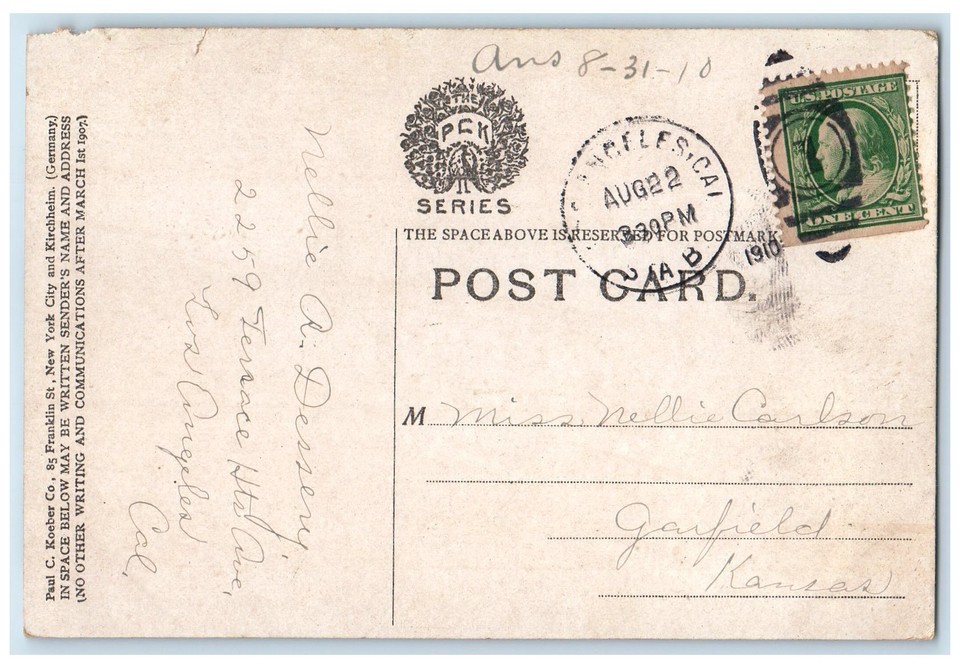 Paul C. Koeber Co., 85 Franklin St., New York City and Kirchheim. (Germany.)
IN SPACE BELOW MAY BE WRITTEN SENDER'S NAME AND ADDRESS
(NO OTHER WRITING AND COMMUNICATIONS AFTER MARCH 1st 1907.)
Nellie R. Dessery,
2259 Terrace Hts Ave,
Los Angeles
Cal,
Ans 8-31-10
THE
PCK
SERIES
ANGELES, CAL
AUG 22
8 30 PM
STA B
1910
U.S. POSTAGE
ONE CENT
THE SPACE ABOVE IS RESERVED FOR POSTMARK.
POST CARD.
M Miss. Nellie Carlson
Garfield
Kansas